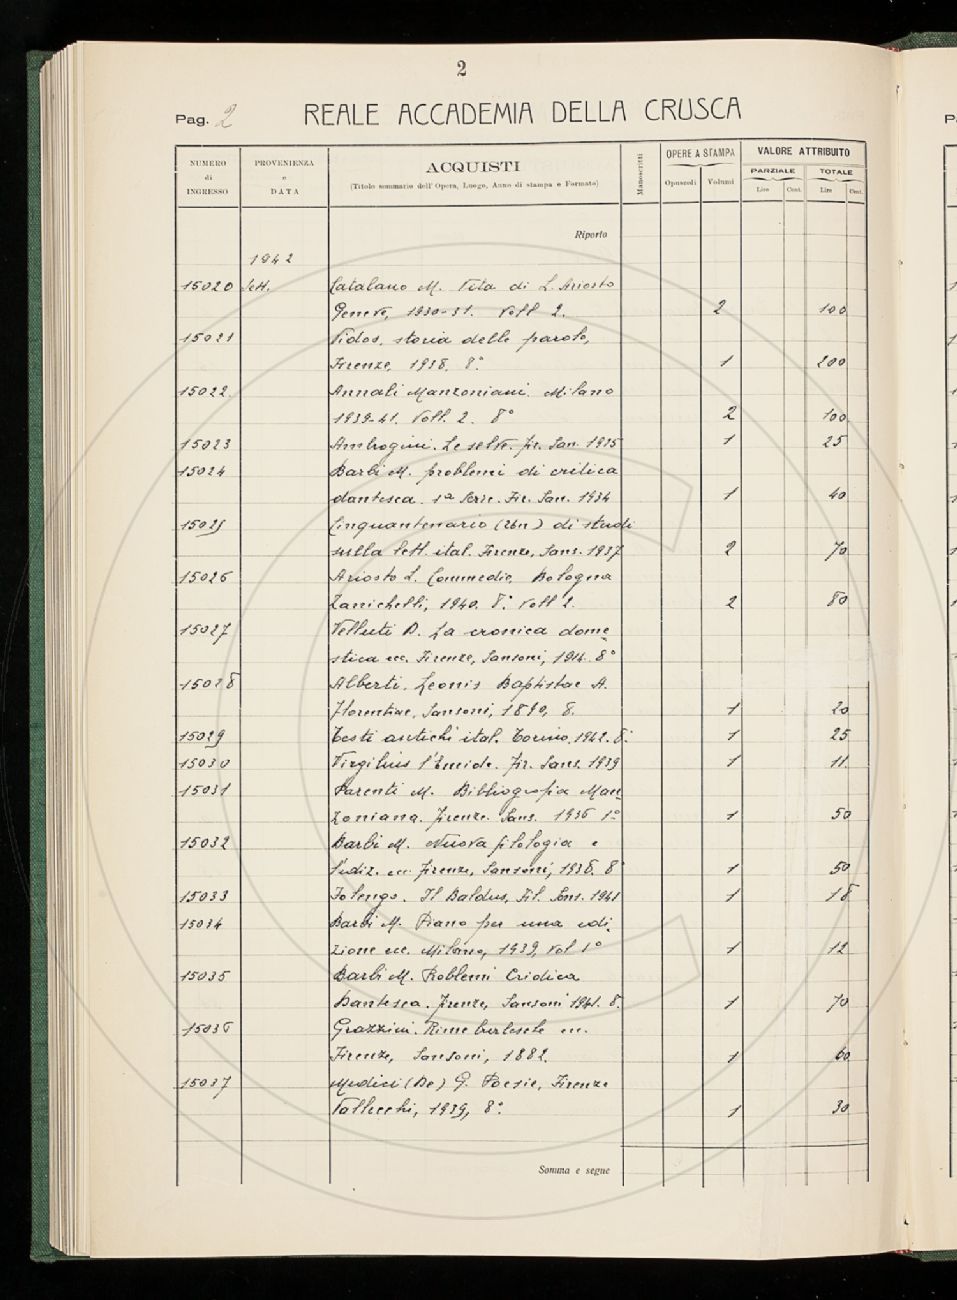 2
Pag. 2 REALE ACCADEMIA DELLA CRUSCA
NUMERO di INGRESSO PROVENIENZA e DATA ACQUISTI (Titolo sommario dell' Opera, Luogo, Anno di stampa e Formato) Manoscritti OPERE A STAMPA Opuscoli Volumi VALORE ATTRIBUITO PARZIALE Lire Cent. TOTALE Lire Cent.
Riporto
1942
15020 Sett. Catalano M. Vita di L. Ariosto
Genève, 1930-31. Voll 2. 2 100
15021 Vidos. storia delle parole,
Firenze, 1938, 8.° 1 200
15022. Annali Manzoniani. Milano
1939-41. Voll. 2. 8° 2 100
15023 Ambrogini. Le selve. Fir. San. 1925 1 25
15024 Barbi M. problemi di critica
dantesca. 1ª Serie. Fir. San. 1934 1 40
15025 Cinquantenario (Un) di studi
sulla lett. ital. Firenze, Sans. 1937 2 70
15026 Ariosto L. Commedie, Bologna
Zanichelli, 1940. 8.° Voll 2. 2 80
15027 Velluti D. La cronica dome-
stica ecc. Firenze, Sansoni, 1914. 8°
15028 Alberti. Leonis Baptistae A.
Florentiae, Sansoni, 1890, 8. 1 20
15029 Testi antichi ital. Torino, 1942. 8.° 1 25
15030 Virgilius l'Eneide. Fir. Sans. 1939 1 11
15031 Parenti M. Bibliografia Man-
zoniana. Firenze. Sans. 1936 1° 1 50
15032 Barbi M. Nuova filologia e
l'ediz. ecc. Firenze, Sansoni, 1938. 8° 1 50
15033 Folengo. Il Baldus, Sans. 1941 1 18
15034 Barbi M. Piano per una edi-
zione ecc. Milano, 1939, Vol 1° 1 12
15035 Barbi M. Problemi Critica
Dantesca. Firenze, Sansoni 1941. 8. 1 70
15036 Grazzini. Rime burlesche ecc.
Firenze, Sansoni, 1882. 1 60
15037 Medici (De) G. Poesie, Firenze
Vallecchi, 1939, 8.° 1 30
Somma e segue